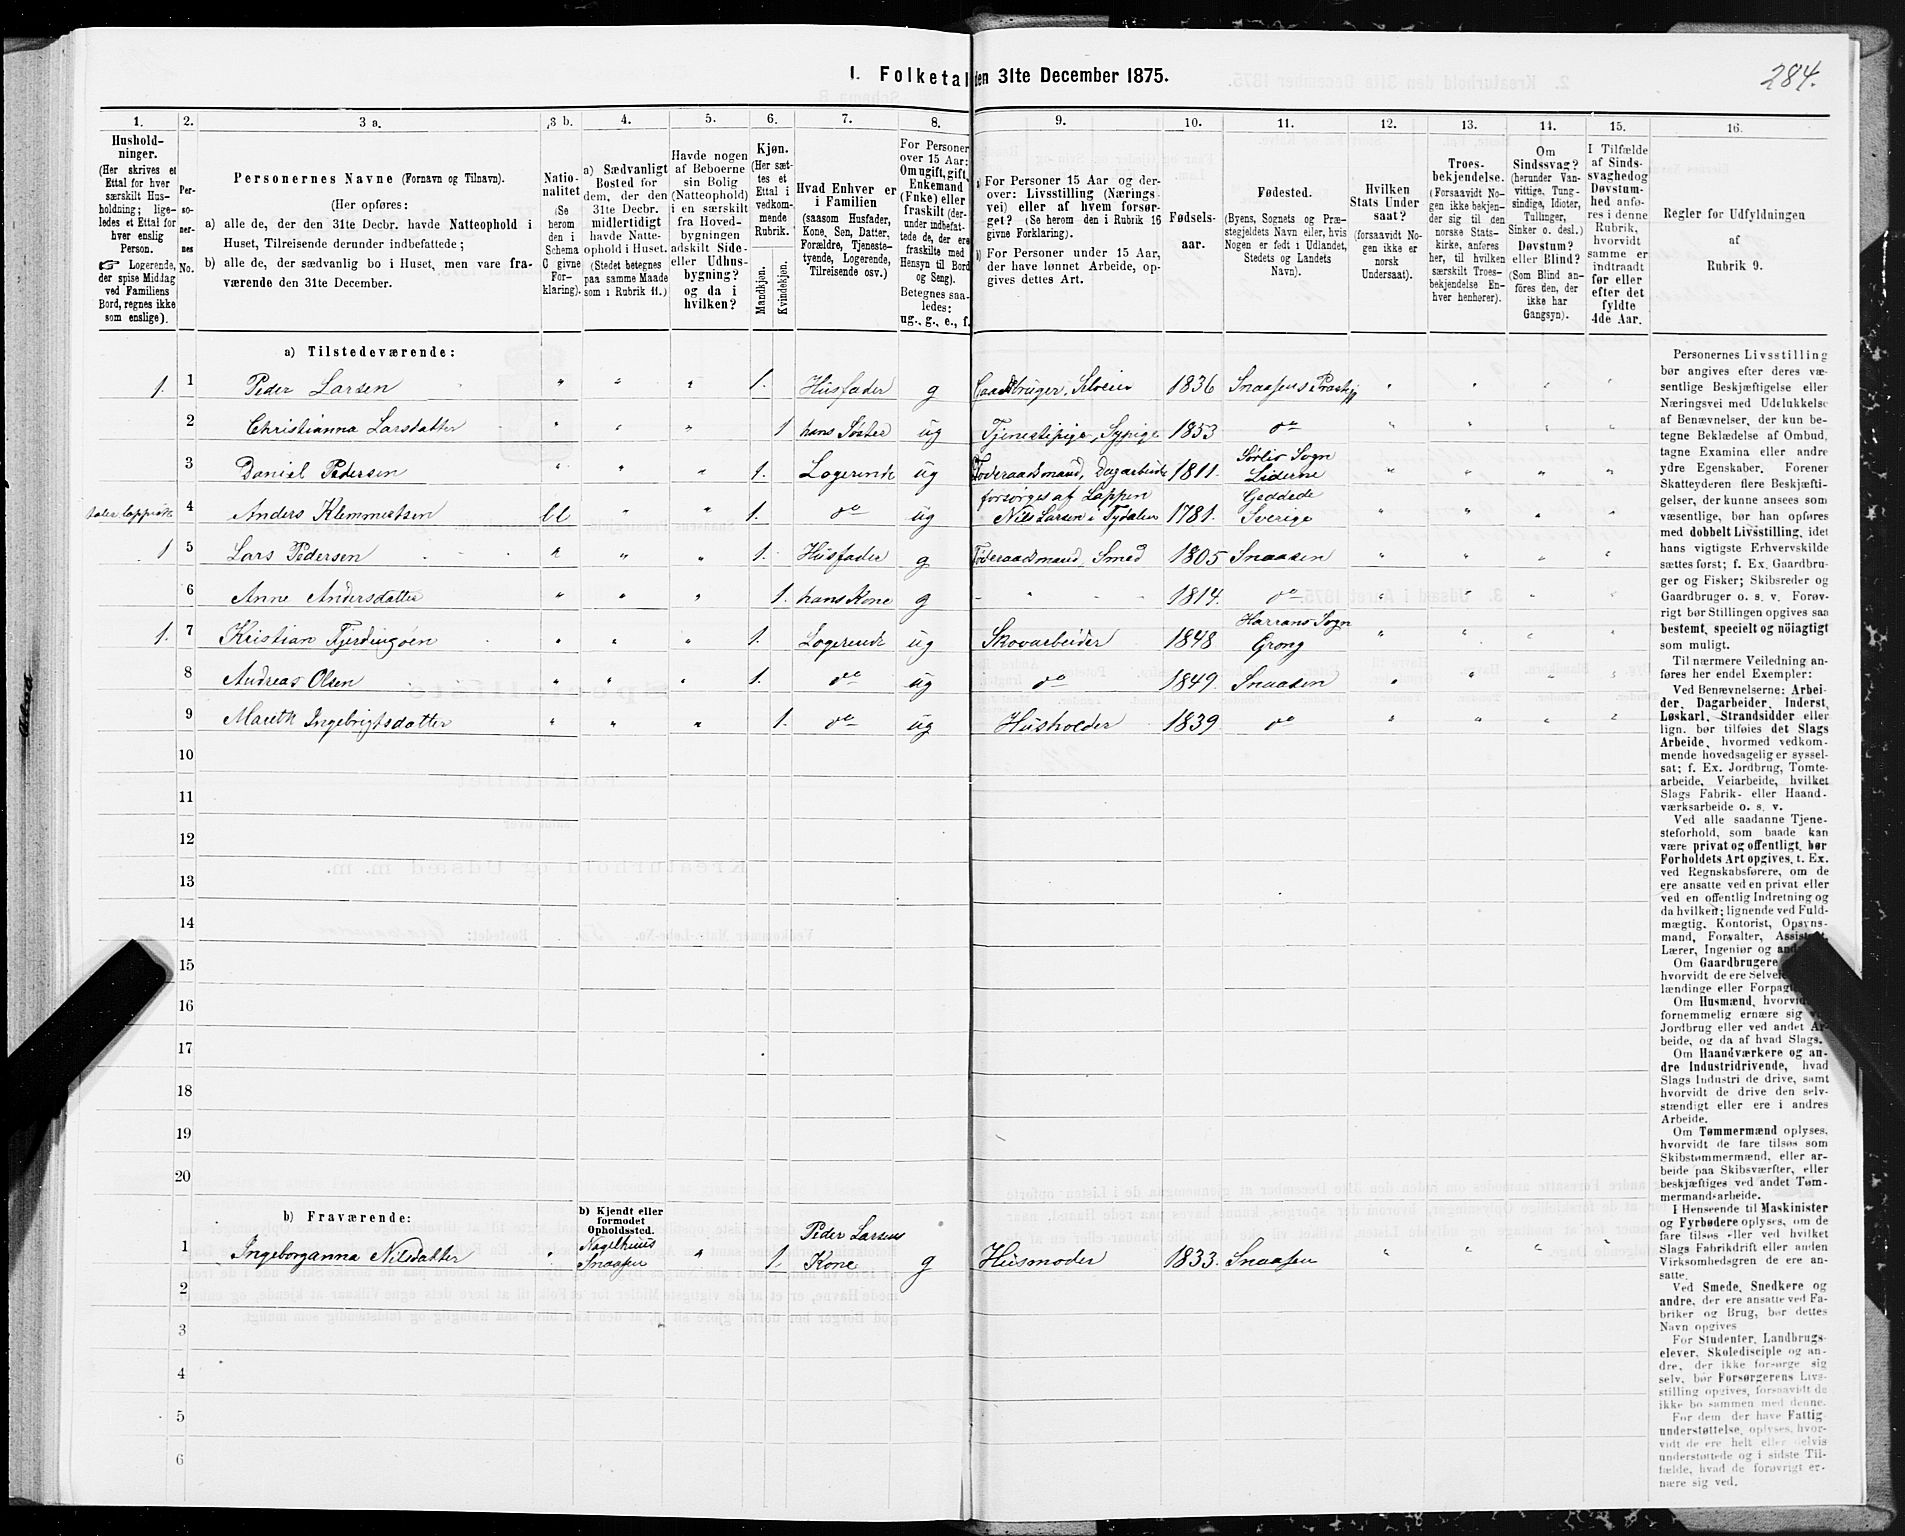 I. Folketal den 31te December 1875.
284.
1.
2.
3 a.
3 b.
4.
5.
6.
7.
8.
9.
10.
11.
12.
13.
14.
15.
16.
Hushold-
ninger.
(Her skrives et
Ettal for hver
særskilt Hus-
holdning; lige-
ledes et Ettal for
hver enslig
Person.
☞ Logerende,
der spise Middag
ved Familiens
Bord, regnes ikke
som enslige).
Per-
so-
ner-
nes
No.
Personernes Navne (Fornavn og Tilnavn).
(Her opføres:
a) alle de, der den 31te Decbr. havde Natteophold i
Huset, Tilreisende derunder indbefattede;
b) alle de, der sædvanlig bo i Huset, men vare fra-
værende den 31te December.
Natio-
nalitet
(Se
herom
den i
Schema
C givne
For-
klaring).
a) Sædvanligt
Bosted for
dem, der den
31te Decbr.
midlertidigt
havde Natte-
ophold i Huset.
(Stedet betegnes
paa samme Maade
som i Rubrik 11.)
Havde nogen
af Beboerne
sin Bolig
(Natteophold)
i en særskilt
fra Hoved-
bygningen
adskilt Side-
eller Udhus-
bygning?
og da i
hvilken?
Kjøn.
(Her sæt-
tes et
Ettal i
vedkom-
mende
Rubrik.)
Mandkjøn.
Kvindekjøn.
Hvad Enhver er
i Familien
(saasom Husfader,
Kone, Søn, Datter,
Forældre, Tjeneste-
tyende, Logerende,
Tilreisende osv.)
For Personer
over 15 Aar:
Om ugift, gift,
Enkemand
(Enke) eller
fraskilt (der-
under indbefat-
tede de, der ere
fraskilte med
Hensyn til Bord
og Seng).
Betegnes saa-
ledes:
ug., g., e., f.
a) For Personer 15 Aar og der-
over: Livsstilling (Nærings-
vei) eller af hvem forsør-
get? (Se herom den i Rubrik 16
givne Forklaring).
b) For Personer under 15 Aar,
der have lønnet Arbeide, op-
gives dettes Art.
Fødsels-
aar.
Fødested.
(Byens, Sognets og Præ-
stegjeldets Navn eller, hvis
Nogen er født i Udlandet,
Stedets og Landets
Navn).
Hvilken
Stats Under
saat?
(forsaavidt No-
gen ikke er
norsk
Undersaat).
Troes-
bekjendelse.
(Forsaavidt No-
gen ikke bekjen-
der sig til den
norske Stats-
kirke, anføres
her, til hvilken
særskilt Troes-
bekjendelse En-
hver henhører).
Om
Sindssvag?
(herunder Van-
vittige, Tung-
sindige, Idioter,
Tullinger,
Sinker o. desl.)
Døvstum?
eller Blind?
(Som Blind an-
føres den, der
ikke har
Gangsyn).
I Tilfælde
af Sinds-
svaghed og
Døvstum-
hed anfø-
res i denne
Rubrik,
hvorvidt
samme er
indtraadt
før eller
efter det
fyldte
4de Aar.
Regler for Udfyldningen
af
Rubrik 9.
a) Tilstedeværende:
1. 1 Peder Larsen " " " 1. Husfader g Gaardbruger, Selveier 1836 Snaasens Præstgj " " " "
2 Christianna Larsdatter " " " 1 hans Søster ug Tjenestepige, Sypige 1853 do " " " "
3 Daniel Pedersen " " " 1. Logerende ug Føderaadsmand, Dagarbeider 1811. Sørlis Sogn Lierne " " " "
taler lappisk 4 Anders Klemmetsen ll " " 1. do ug forsørges af Lappen Nils Larsen i Tydalen 1781. Geddede Sverige " " " "
1 5 Lars Pedersen " " " 1. Husfader g Føderaadsmand, Smed 1805 Snaasen " " " "
6 Anne Andersdatter " " " 1. hans Kone g - " - 1814. do " " " "
1. 7 Kristian Fjerdingøen " " " 1. Logerende ug Skovarbeider 1848 Harrans Sogn Grong " " " "
8 Andreas Olsen " " " 1. do ug do 1849. Snaasen " " " "
9 Mareth Ingebrigtsdatter " " " 1. do ug Husholder 1839. do " " " "
10
11
12
13
14
15
16
17
18
19
20
b) Fraværende:
b) Kjendt eller
formodet
Opholdssted.
1 Ingeborganna Nilsdatter " Nagelhuus Snaasen " 1. Peder Larsens Kone g Husmoder 1833. Snaasen " " " "
2
3
4
5
6
Personernes Livsstilling
bør angives efter deres væ-
sentlige Beskjæftigelse eller
Næringsvei med Udelukkelse
af Benævnelser, der kun be-
tegne Beklædelse af Ombud,
tagne Examina eller andre
ydre Egenskaber. Forener
Skatteyderen flere Beskjæfti-
gelser, der kunne ansees som
væsentlige, bør han opføres
med dobbelt Livsstilling, idet
hans vigtigste Erhvervskilde
sættes først; f. Ex. Gaardbru-
ger og Fisker; Skibsreder og
Gaardbruger o. s. v. Forøv-
rigt bør Stillingen opgives saa
bestemt, specielt og nøiagtigt
som muligt.
Til nærmere Veiledning an-
føres her endel Exempler:
Ved Benævnelserne: Arbei-
der, Dagarbeider, Inderst,
Løskarl, Strandsidder eller
lign. bør tilføies det Slags
Arbeide, hvormed vedkom-
mende hovedsagelig er syssel-
sat; f. Ex. Jordbrug, Tomte-
arbeide, Veiarbeide, hvilket
Slags Fabrik- eller Haand-
værksarbeide o. s. v.
Ved alle saadanne Tjene-
steforhold, som baade kan
være privat og offentligt, bør
Forholdets Art opgives, t. Ex.
ved Regnskabsførere, om de
ere ansatte ved en privat eller
ved en offentlig Indretning og
da hvilken; lignende ved Fuld-
mægtig, Kontorist, Opsyns-
mand, Forvalter, Assistent,
Lærer, Ingeniør og
Om Gaardbrugere
hvorvidt de ere
lændinge eller
Om Husmænd,
fornemmelig ernære sig
Jordbrug eller ved andet Ar-
beide, og da af hvad Slags.
Om Haandværkere og an-
dre Industridrivende, hvad
Slags Industri de drive, samt
hvorvidt de drive den selv-
stændigt eller ere i andres
Arbeide.
Om Tømmermænd oplyses,
hvorvidt de fare tilsøs som
Skibstømmermænd, eller ar-
beide paa Skibsværfter, eller
beskjæftiges ved andet Tøm-
mermandsarbeide.
I Henseende til Maskinister
og Fyrbødere oplyses, om de
fare tilsøs eller ved hvilket
Slags Fabrikdrift eller anden
Virksomhedsgren de ere an-
satte.
Ved Smede, Snedkere og
andre, der ere ansatte ved Fa-
briker og Brug, bør dettes
Navn opgives
For Studenter, Landbrugs-
elever, Skoledisciple og an-
dre, der ikke forsørge sig
selv, bør Forsørgerens Livs-
stilling opgives, forsaavidt de
ikke bo sammen med denne.
For dem der have Fattig-
understøttelse, oplyses, hvor-
vidt de ere helt eller delvis
understøttede og i sidste Til-
fælde, hvad de forøvrigt er-
nære sig ved.